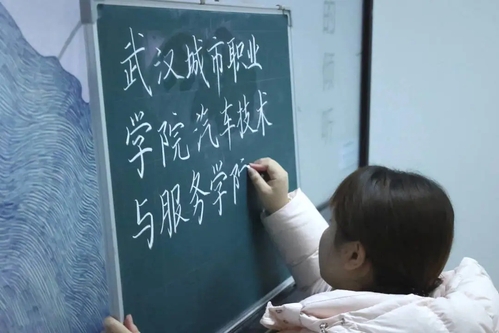 武汉城市职业
学院汽车技术
与服务学